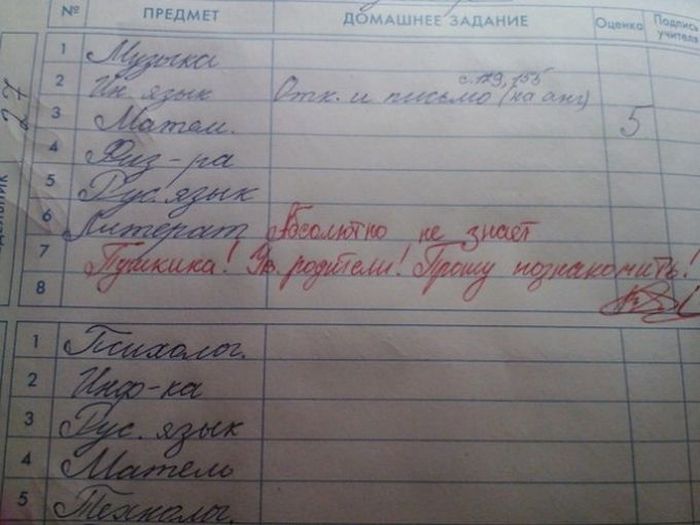 № ПРЕДМЕТ ДОМАШНЕЕ ЗАДАНИЕ Оценка Подпись учителя
1 Музыка
с. 179, 155
2 Ин. язык Отк. и письмо (на анг)
3 Матем. 5
4 Физ-ра
5 Рус. язык
6 Литерат Абсолютно не знает
7 Пушкина! Ув. родители! Прошу познакомить!
8
1 Психолог.
2 Инф-ка
3 Рус. язык
4 Матем
5 Технолог.
27